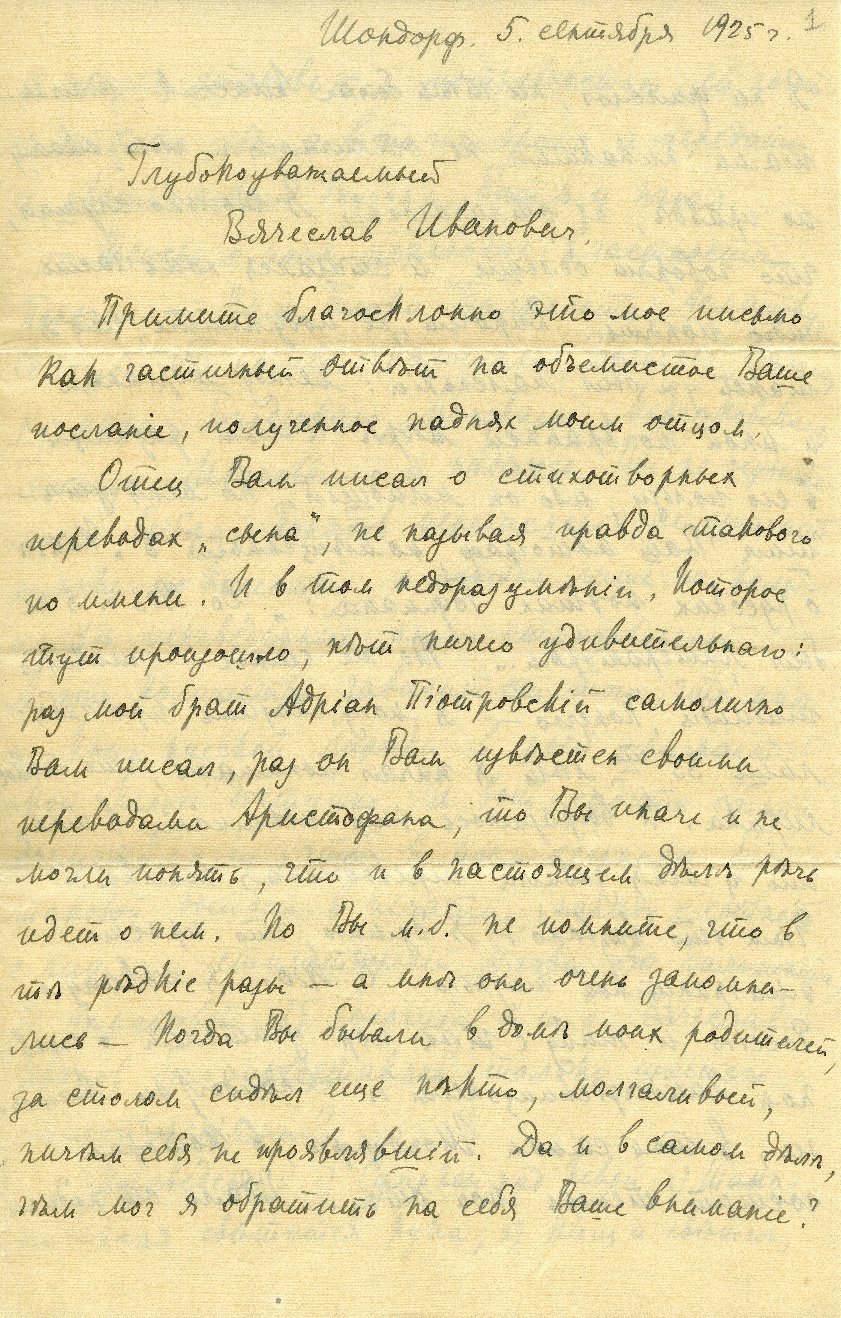 Шондорф. 5. сентября 1925 г. 1
Глубокоуважаемый
Вячеслав Иванович.
Примите благосклонно это мое письмо
как частичный отвѣт на объемистое Ваше
посланіе, полученное надняx моим отцом.
Отец Вам писал о стихотворных
переводах „сына“, не называя правда такового
по имени. И в том недоразумѣніи, которое
тут произошло, нѣт ничего удивительнаго:
раз мой брат Адріан Піотровскій самолично
Вам писал, раз он Вам извѣстен своими
переводами Аристофана, то Вы иначе и не
могли понять, что и в настоящем дѣлѣ рѣчь
идет о нем. Но Вы м.б. не помните, что в
тѣ рѣдкіе разы — а мнѣ они очень запомни-
лись — когда Вы бывали в домѣ моих родителей,
за столом сидѣл еще нѣкто, молчаливый,
ничѣм себя не проявлявшій. Да и в самом дѣлѣ,
чѣм мог я обратить на себя Ваше вниманіе?